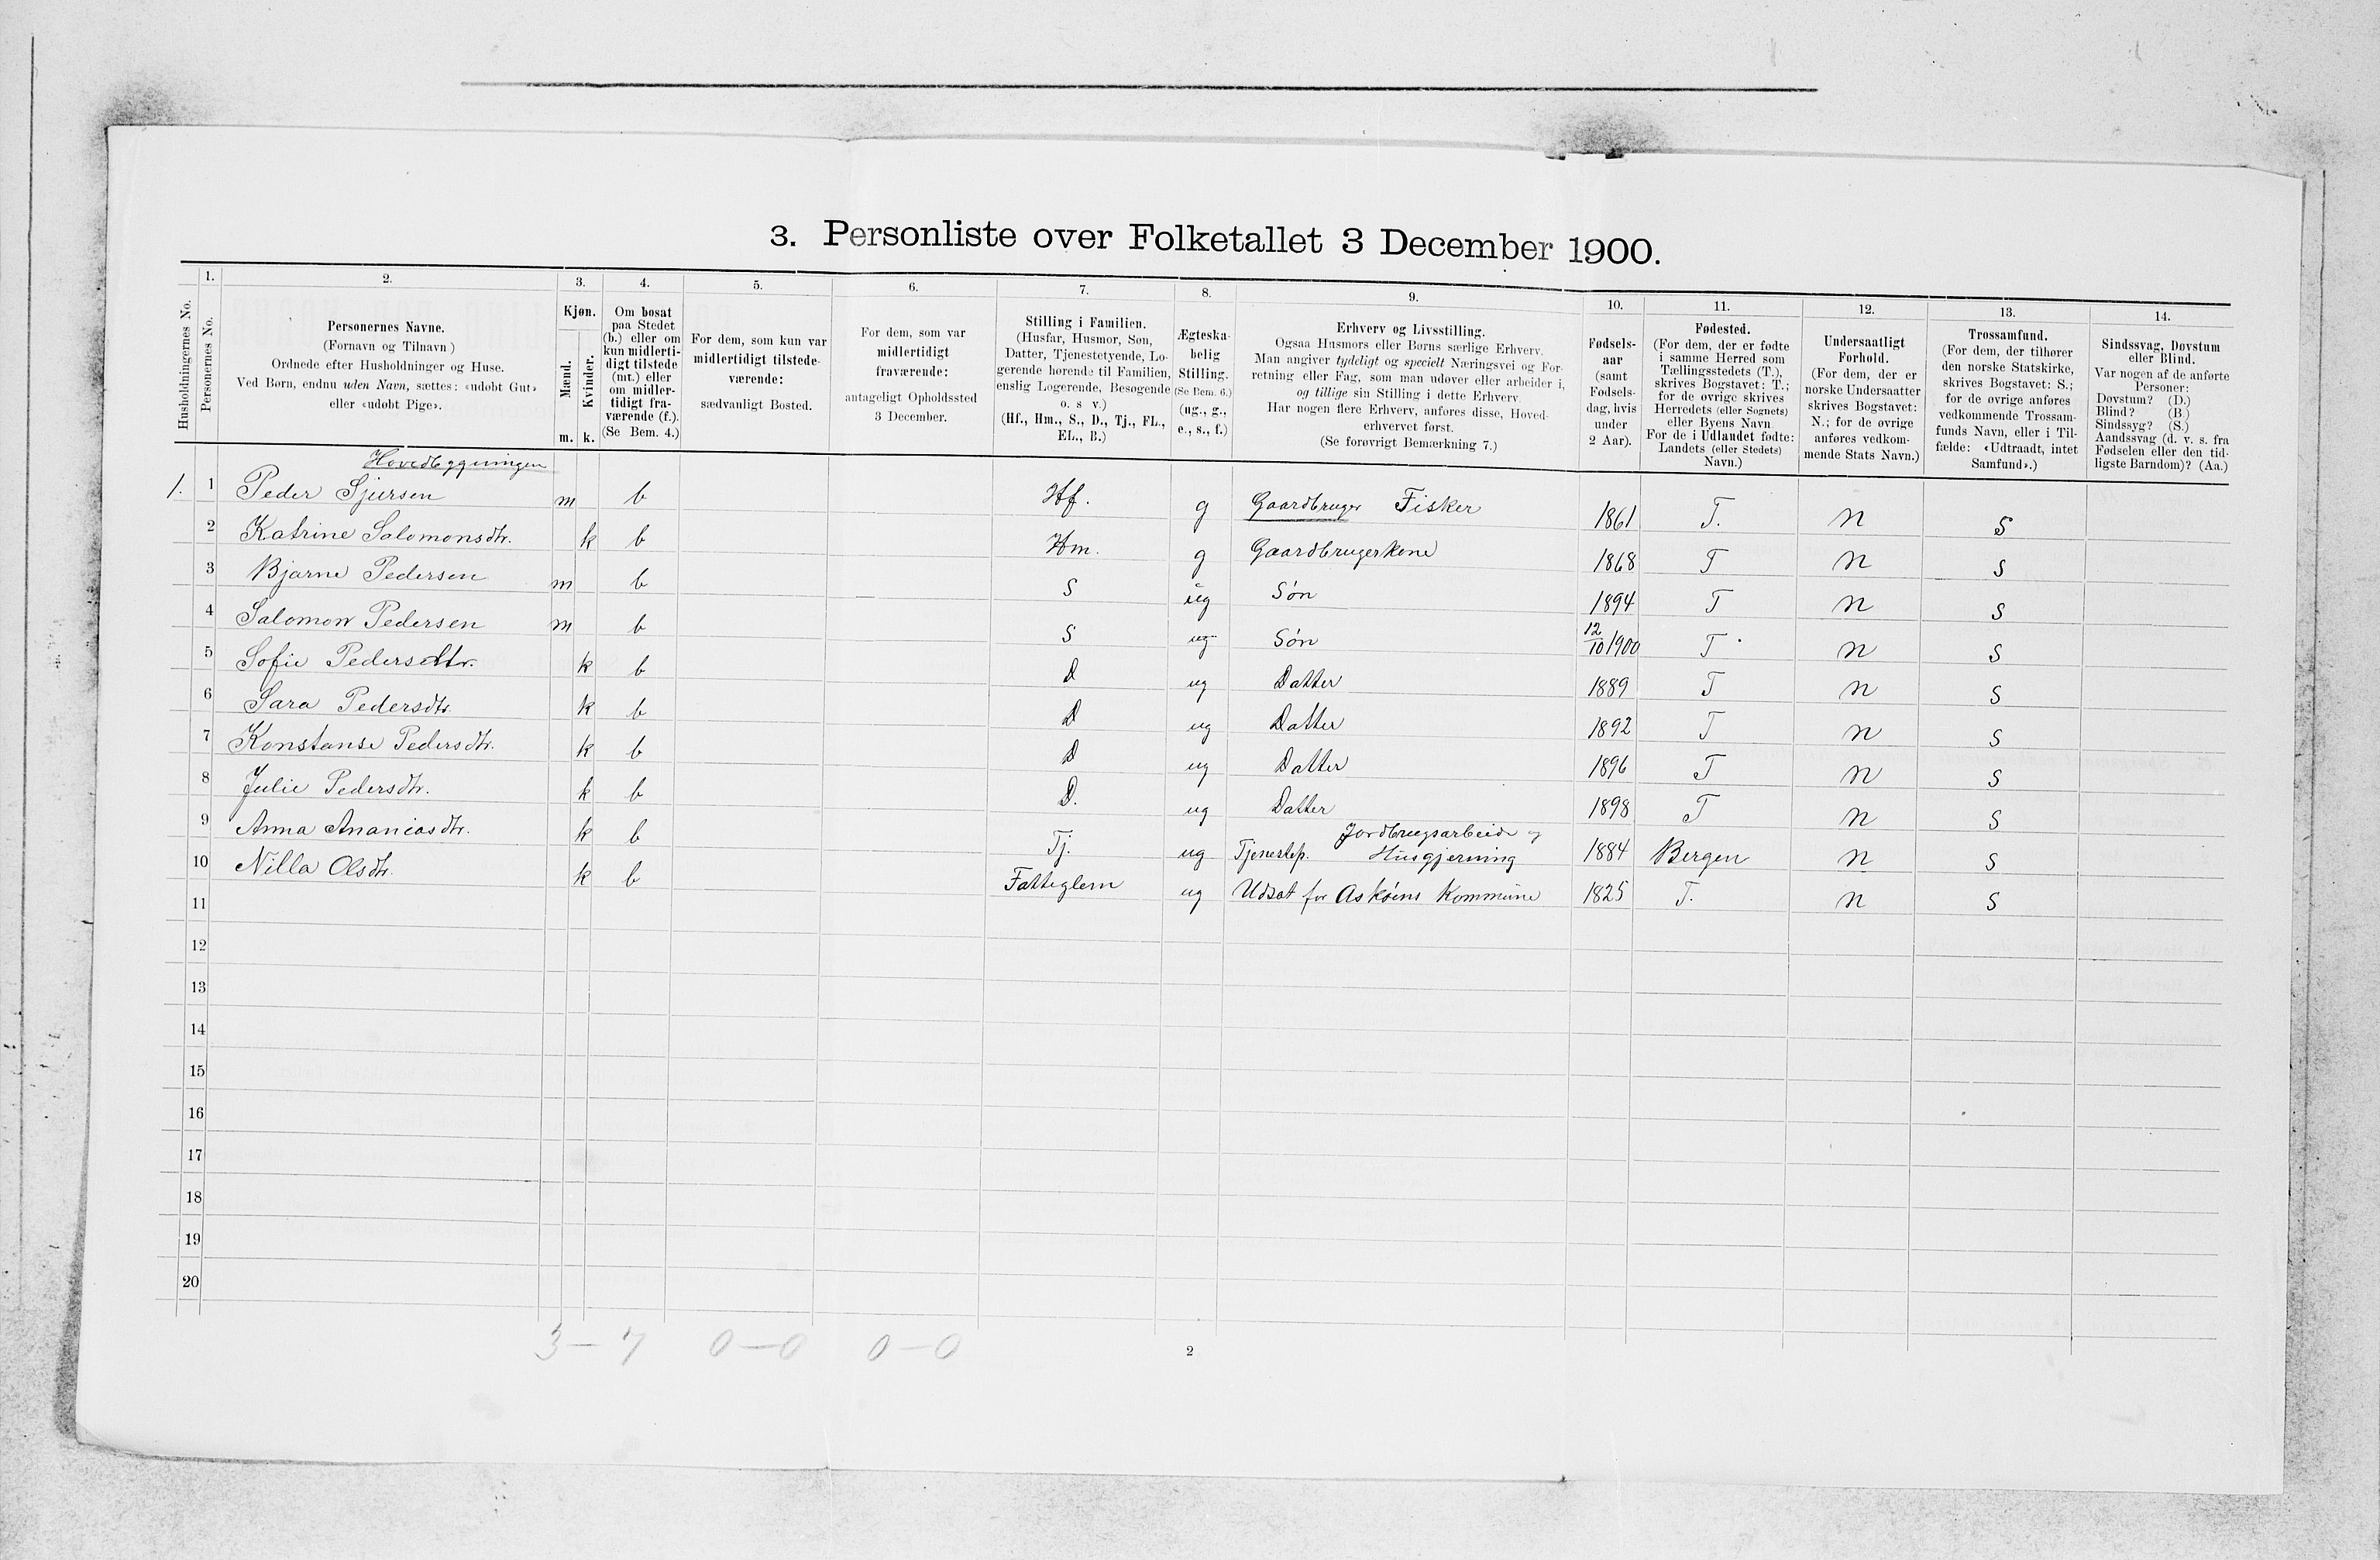 3. Personliste over Folketallet 3 December 1900.
Husholdningernes No.
1. Personernes No.
2. Personernes Navne.
(Fornavn og Tilnavn.)
Ordnede efter Husholdninger og Huse.
Ved Børn, endnu uden Navn, sættes: «udøbt Gut»
eller «udøbt Pige».
3. Kjøn.
Mænd. Kvinder.
m. k.
4. Om bosat
paa Stedet
(b.) eller om
kun midlerti-
digt tilstede
(mt.) eller
om midler-
tidigt fra-
værende (f.).
(Se Bem. 4.)
5. For dem, som kun var
midlertidigt tilstede-
værende:
sædvanligt Bosted.
6. For dem, som var
midlertidigt
fraværende:
antageligt Opholdssted
3 December.
7. Stilling i Familien.
(Husfar, Husmor, Søn,
Datter, Tjenestetyende, Lo-
gerende hørende til Familien,
enslig Logerende, Besøgende
o. s v.)
(Hf., Hm., S., D., Tj., FL.,
EL., B.)
8. Ægteska-
belig
Stilling.
(Se Bem. 6.)
(ug., g.,
e., s., f.)
9. Erhverv og Livsstilling.
Ogsaa Husmors eller Børns særlige Erhverv.
Man angiver tydeligt og specielt Næringsvei og For-
retning eller Fag, som man udøver eller arbeider i,
og tillige sin Stilling i dette Erhverv.
Har nogen flere Erhverv, anføres disse, Hoved-
erhvervet først.
(Se forøvrigt Bemærkning 7.)
10. Fødsels-
aar
(samt
Fødsels-
dag, hvis
under
2 Aar).
11. Fødested.
(For dem, der er fødte
i samme Herred som
Tællingsstedets (T.),
skrives Bogstavet: T.;
for de øvrige skrives
Herredets (eller Sognets)
eller Byens Navn
For de i Udlandet fødte:
Landets (eller Stedets)
Navn.)
12. Undersaatligt
Forhold.
(For dem, der er
norske Undersaatter
skrives Bogstavet:
N.; for de øvrige
anføres vedkom-
mende Stats Navn.)
13. Trossamfund.
(For dem, der tilhører
den norske Statskirke,
skrives Bogstavet: S.;
for de øvrige anføres
vedkommende Trossam-
funds Navn, eller i Til-
fælde: «Udtraadt, intet
Samfund».)
14. Sindssvag, Døvstum
eller Blind.
Var nogen af de anførte
Personer:
Døvstum? (D.)
Blind? (B.)
Sindssyg? (S.)
Aandssvag (d. v. s. fra
Fødselen eller den tid-
ligste Barndom)? (Aa.)
Hovedbygningen
1. 1 Peder Sjursen m b Hf. g Gaardbruger Fisker 1861 T. N S
2 Katrine Salomonsdtr. k b Hm. g Gaardbrugerkone 1868 T N S
3 Bjarne Pedersen m b S ug Søn 1894 T N S
4 Salomon Pedersen m b S ug Søn 12/10 1900 T N S
5 Sofie Pedersdtr. k b D ug Datter 1889 T N S
6 Sara Pedersdtr. k b D ug Datter 1892 T N S
7 Konstanse Pedersdtr. k b D ug Datter 1896 T N S
8 Julie Pedersdtr. k b D. ug Datter 1898 T N S
9 Anna Ananiasdtr. k b Tj. ug Tjenestep. Jordbrugsarbeide og Husgjerning 1884 Bergen N S
10 Nilla Olsdtr. k b Fatteglem ug Udsat for Askøens Kommune 1825 T. N S
11
12
13
14
15
16
17
18
19
20
3-7 0-0 0-0
2